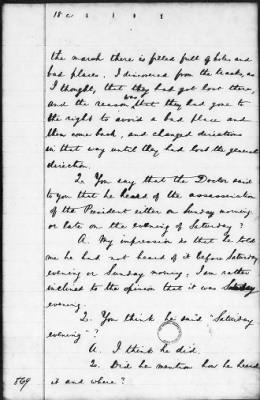 18
the marsh there is filled full of holes and
bad places. I discovered from the tracks, as
I thought, that they had got lost there,
and the reason was that they had gone to
the right to avoid a bad place and
then come back, and changed directions
in that way until they had lost the general
direction.
Q. You say that the Doctor said
to you that he heard of the assassination
of the President either on Sunday morning
or late on the evening of Saturday?
A. My impression is that he told
me he had not heard of it before Saturday
evening or Sunday morning; I am rather
inclined to the opinion that it was Saturday
evening.
Q. You think he said "Saturday
evening"?
A. I think he did.
Q. Did he mention how he heard
869 it and where?